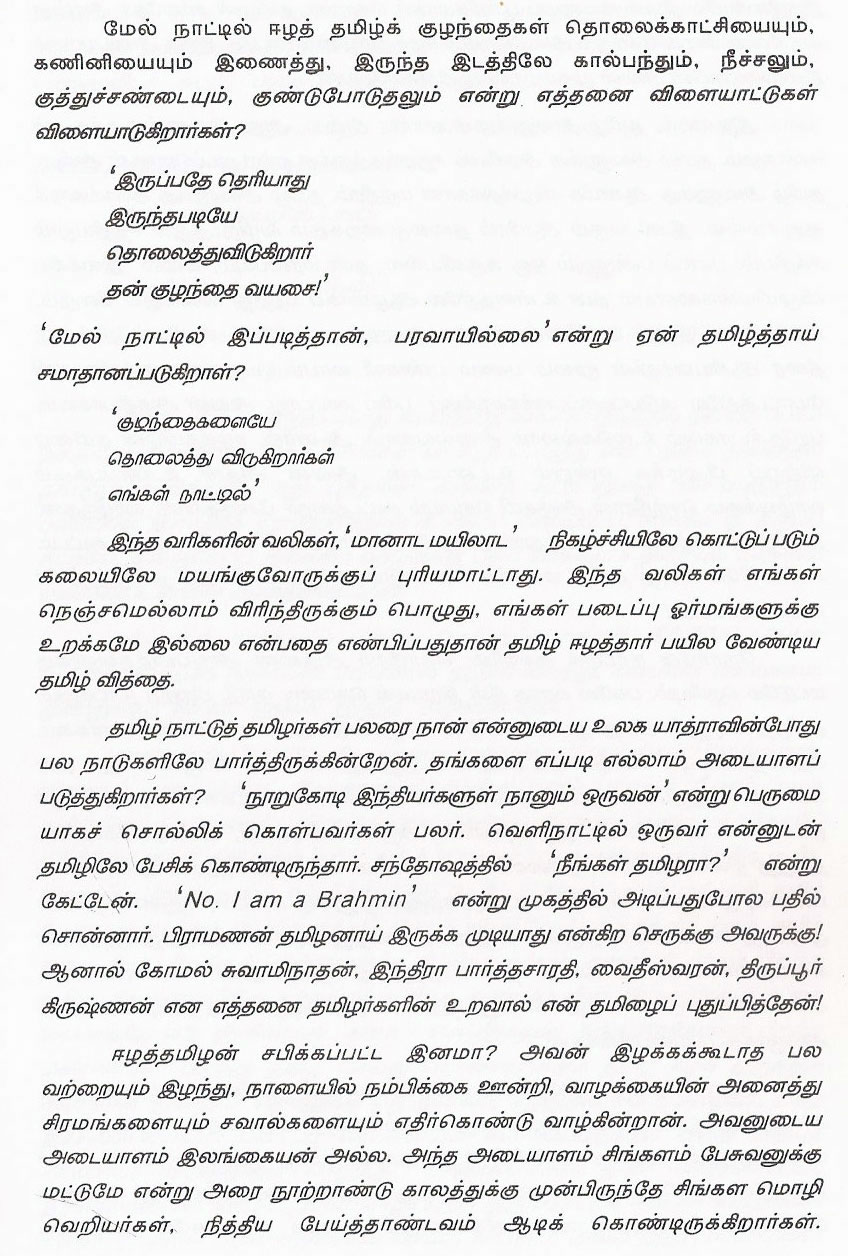 மேல் நாட்டில் ஈழத் தமிழ்க் குழந்தைகள் தொலைக்காட்சியையும்,
கணினியையும் இணைத்து, இருந்த இடத்திலே கால்பந்தும், நீச்சலும்,
குத்துச்சண்டையும், குண்டுபோடுதலும் என்று எத்தனை விளையாட்டுகள்
விளையாடுகிறார்கள்?
‘இருப்பதே தெரியாது
இருந்தபடியே
தொலைத்துவிடுகிறார்
தன் குழந்தை வயசை!’
‘மேல் நாட்டில் இப்படித்தான், பரவாயில்லை’ என்று ஏன் தமிழ்த்தாய்
சமாதானப்படுகிறாள்?
‘குழந்தைகளையே
தொலைத்து விடுகிறார்கள்
எங்கள் நாட்டில்’
இந்த வரிகளின் வலிகள், ‘மானாட மயிலாட’ நிகழ்ச்சியிலே கொட்டுப் படும்
கலையிலே மயங்குவோருக்குப் புரியமாட்டாது. இந்த வலிகள் எங்கள்
நெஞ்சமெல்லாம் விரிந்திருக்கும் பொழுது, எங்கள் படைப்பு ஓர்மங்களுக்கு
உறக்கமே இல்லை என்பதை எண்பிப்பதுதான் தமிழ் ஈழத்தார் பயில வேண்டிய
தமிழ் வித்தை.
தமிழ் நாட்டுத் தமிழர்கள் பலரை நான் என்னுடைய உலக யாத்ராவின்போது
பல நாடுகளிலே பார்த்திருக்கின்றேன். தங்களை எப்படி எல்லாம் அடையாளப்
படுத்துகிறார்கள்? ‘நூறுகோடி இந்தியர்களுள் நானும் ஒருவன்’ என்று பெருமை
யாகச் சொல்லிக் கொள்பவர்கள் பலர். வெளிநாட்டில் ஒருவர் என்னுடன்
தமிழிலே பேசிக் கொண்டிருந்தார். சந்தோஷத்தில் ‘நீங்கள் தமிழரா?’ என்று
கேட்டேன். ‘No. I am a Brahmin’ என்று முகத்தில் அடிப்பதுபோல பதில்
சொன்னார். பிராமணன் தமிழனாய் இருக்க முடியாது என்கிற செருக்கு அவருக்கு!
ஆனால் கோமல் சுவாமிநாதன், இந்திரா பார்த்தசாரதி, வைதீஸ்வரன், திருப்பூர்
கிருஷ்ணன் என எத்தனை தமிழர்களின் உறவால் என் தமிழைப் புதுப்பித்தேன்!
ஈழத்தமிழன் சபிக்கப்பட்ட இனமா? அவன் இழக்கக்கூடாத பல
வற்றையும் இழந்து, நாளையில் நம்பிக்கை ஊன்றி, வாழக்கையின் அனைத்து
சிரமங்களையும் சவால்களையும் எதிர்கொண்டு வாழ்கின்றான். அவனுடைய
அடையாளம் இலங்கையன் அல்ல. அந்த அடையாளம் சிங்களம் பேசுவனுக்கு
மட்டுமே என்று அரை நூற்றாண்டு காலத்துக்கு முன்பிருந்தே சிங்கள மொழி
வெறியர்கள், நித்திய பேய்த்தாண்டவம் ஆடிக் கொண்டிருக்கிறார்கள்.